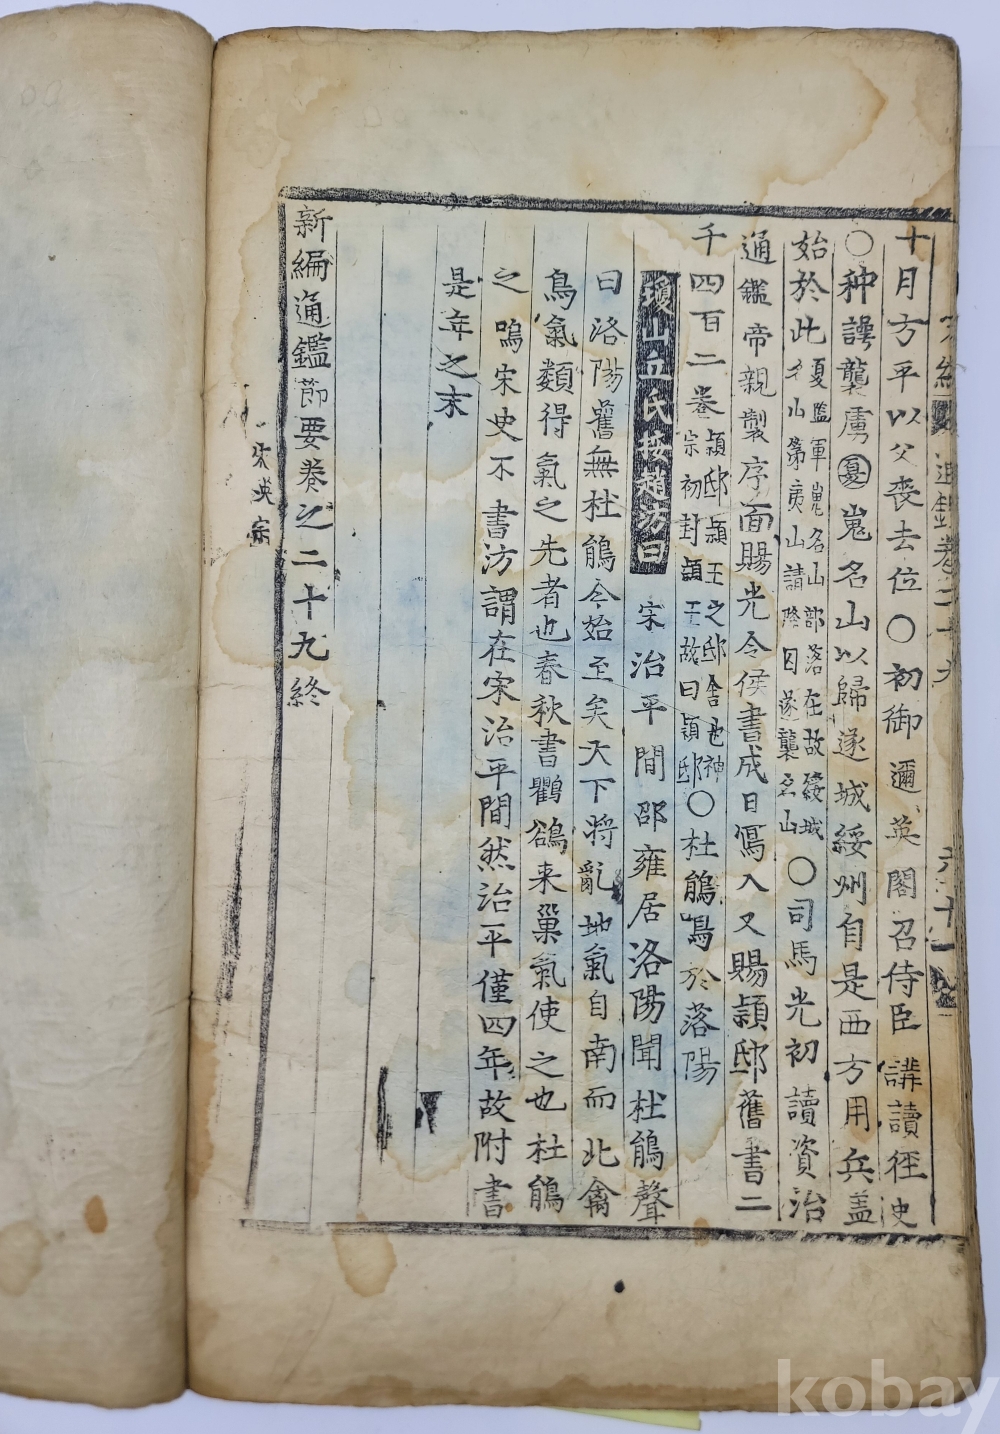 十月方平以父丧去位〇初御邇英閣召侍臣講讀徑史
〇种諤襲虜憂嵬名山以歸遂城綏州自是西方用兵盖
始於此夏監軍嵬名山部落在故綏城名山第夷山請降因遂襲名山〇司馬光初讀資治
通鑑帝親製序面賜光令侯書成日寫入又賜頴邸舊書二
千四百二卷頴邸頴王之邸舍也神宗初封頴王故曰頴邸〇杜鵑鳴於落陽
瓊山丘氏按趙汸曰宋治平間邵雍居洛陽聞杜鵑聲
曰洛陽舊無杜鵑今始至矣天下将亂地氣自南而北禽
鳥氣類得氣之先者也春秋書鸜鵒来巢氣使之也杜鵑
之鳴宋史不書汸謂在宋治平間然治平僅四年故附書
是年之末
新編通鑑節要卷之二十九終
宋英宗
kobay